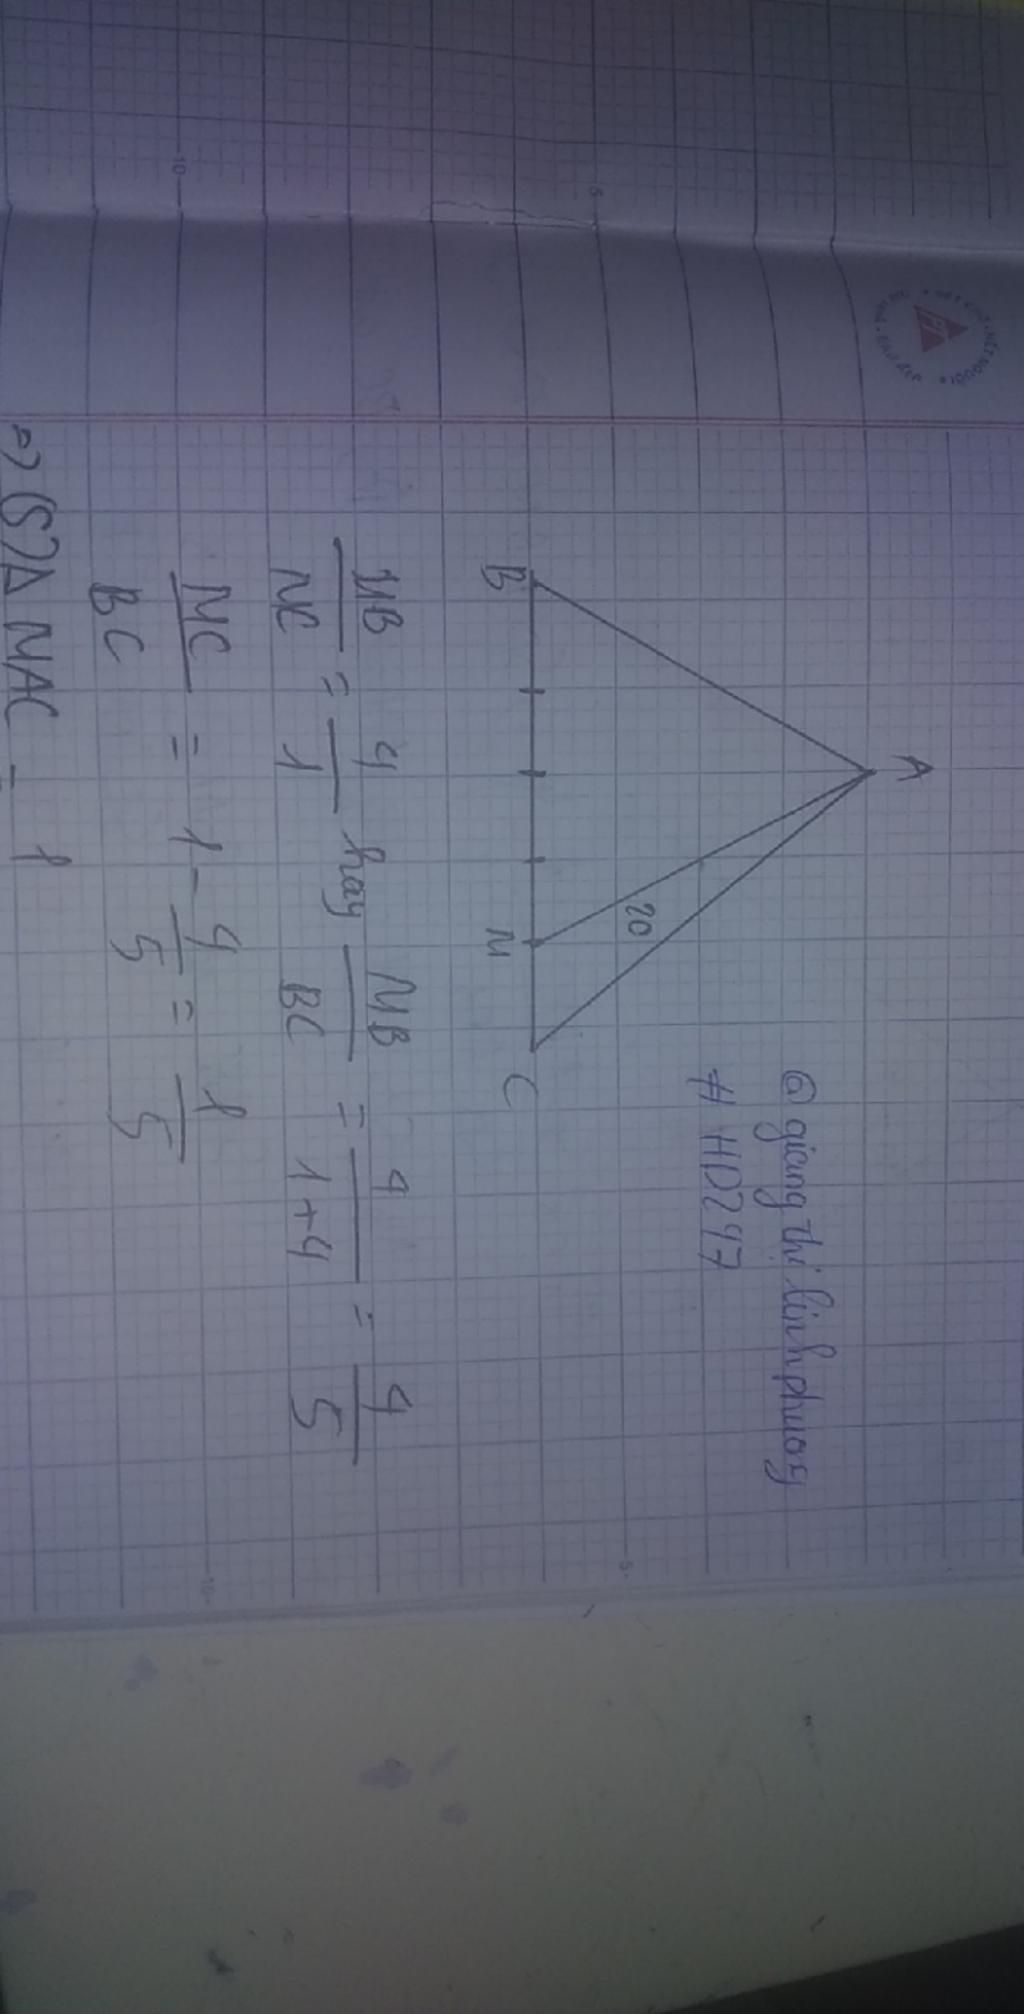 A
@ giang thi linhphuog
# HD247
20
B M C
MB/NC = 4/1 hay MB/BC = 4/1+4 = 4/5
MC/BC = 1 - 4/5 = 1/5
=> (S)Δ MAC = 1